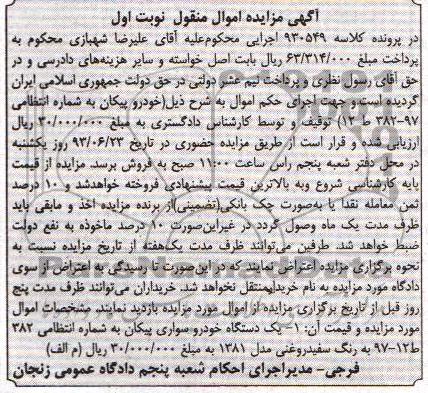 آگهی مزایده اموال منقول نوبت اول
در پرونده کلاسه ۹۳۰۵۴۹ اجرایی محکوم‌علیه آقای علیرضا شهبازی محکوم به
پرداخت مبلغ ۶۳/۳۱۴/۰۰۰ ریال بابت اصل خواسته و سایر هزینه‌های دادرسی و در
حق آقای رسول نظری و پرداخت نیم عشر دولتی در حق دولت جمهوری اسلامی ایران
گردیده است و جهت اجرای حکم اموال به شرح ذیل(خودرو پیکان به شماره انتظامی
۹۷-۳۸۲ ط ۱۲) توقیف و توسط کارشناس دادگستری به مبلغ ۳۰/۰۰۰/۰۰۰ ریال
ارزیابی شده و قرار است از طریق مزایده حضوری در تاریخ ۹۳/۰۶/۲۳ روز یکشنبه
در محل دفتر شعبه پنجم راس ساعت ۱۱:۰۰ صبح به فروش برسد. مزایده از قیمت
پایه کارشناسی شروع وبه بالاترین قیمت پیشنهادی فروخته خواهدشد و ۱۰ درصد
ثمن معامله نقدا یا به‌صورت چک بانکی(تضمینی)از برنده مزایده اخذ و مابقی باید
ظرف مدت یک ماه وصول گردد در غیراین‌صورت ۱۰ درصد ماخوذه به نفع دولت
ضبط خواهد شد. طرفین می‌توانند ظرف مدت یک‌هفته از تاریخ مزایده نسبت به
نحوه برگزاری مزایده اعتراض نمایند که در این‌صورت تا رسیدگی به اعتراض از سوی
دادگاه مورد مزایده به نام خریدارمنتقل نخواهد شد. خریداران می‌توانند ظرف مدت پنج
روز قبل از تاریخ برگزاری مزایده از اموال مورد مزایده بازدید نمایند. مشخصات اموال
مورد مزایده و قیمت آن: ۱- یک دستگاه خودرو سواری پیکان به شماره انتظامی ۳۸۲
ط۱۲-۹۷ به رنگ سفیدروغنی مدل ۱۳۸۱ به مبلغ ۳۰/۰۰۰/۰۰۰ ریال (م الف)
فرجی- مدیراجرای احکام شعبه پنجم دادگاه عمومی زنجان